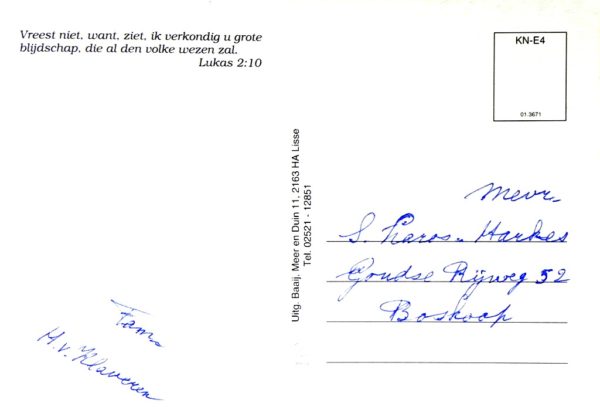 Vreest niet, want, ziet, ik verkondig u grote
blijdschap, die al den volke wezen zal.
Lukas 2:10
KN-E4
01.3671
Uitg. Baaij, Meer en Duin 11, 2163 HA Lisse
Tel. 02521 - 12851
Mevr.
S. Karos-Harkes
Goudse Rijweg 52
Boskoop
Fam.
H.v. Klaveren